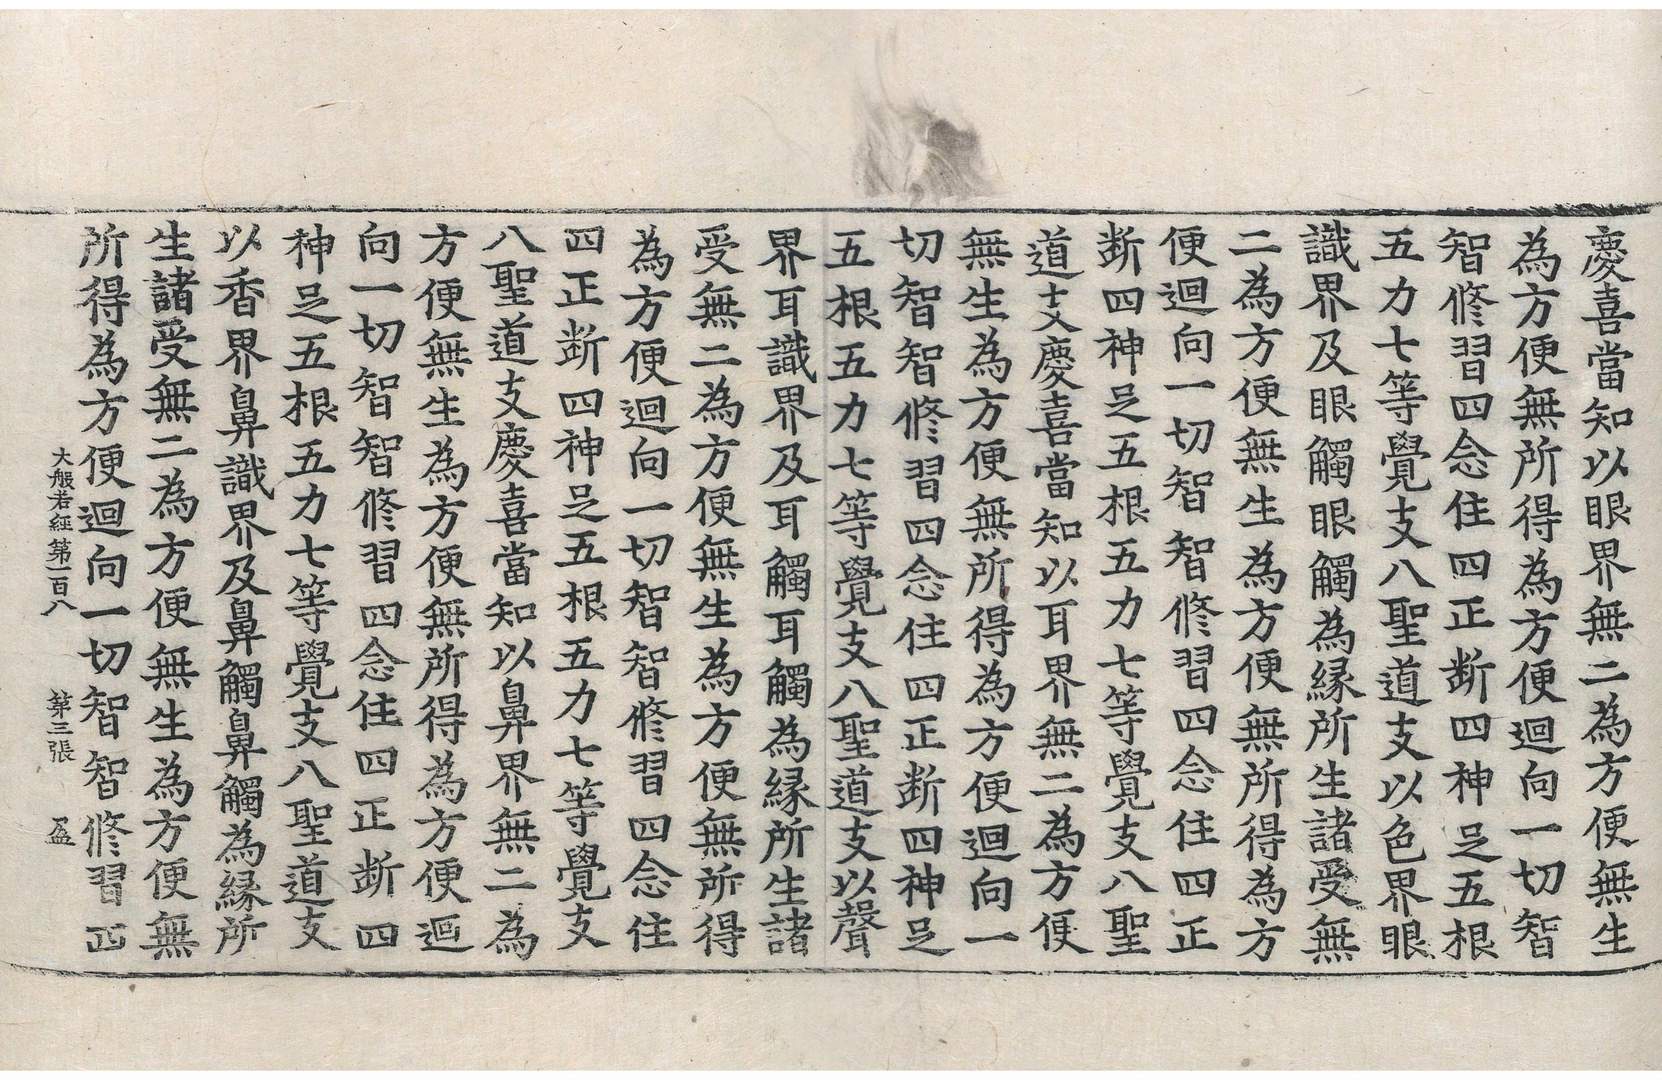 慶喜當知以眼界無二為方便無生
為方便無所得為方便迴向一切智
智修習四念住四正断四神足五根
五力七等覺支八聖道支以色界眼
識界及眼觸眼觸為縁所生諸受無
二為方便無生為方便無所得為方
便迴向一切智智修習四念住四正
断四神足五根五力七等覺支八聖
道支慶喜當知以耳界無二為方便
無生為方便無所得為方便迴向一
切智智修習四念住四正断四神足
五根五力七等覺支八聖道支以聲
界耳識界及耳觸耳觸為縁所生諸
受無二為方便無生為方便無所得
為方便迴向一切智智修習四念住
四正断四神足五根五力七等覺支
八聖道支慶喜當知以鼻界無二為
方便無生為方便無所得為方便迴
向一切智智修習四念住四正断四
神足五根五力七等覺支八聖道支
以香界鼻識界及鼻觸鼻觸為縁所
生諸受無二為方便無生為方便無
所得為方便迴向一切智智修習四
大般若經第一百八 第三張 盈